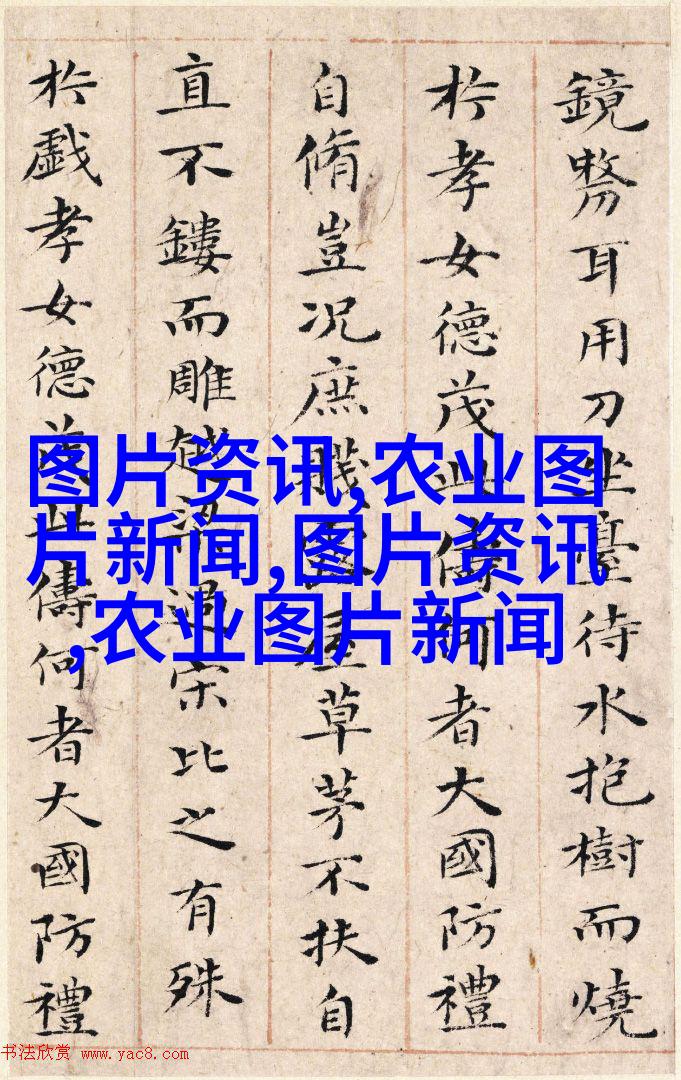 鏡剺耳用刀坐臺待水抱樹而燒
扵孝女德茂此儔何者大國防禮
自脩豈況庶賤屋草茅不扶自
直不鏤而雕越梁過宋比之有殊
扵戲孝女德茂此儔何者大國防禮
图片资讯,农业图
片新闻,图片资讯
,农业图片新闻
书法欣赏 www.yac8.com